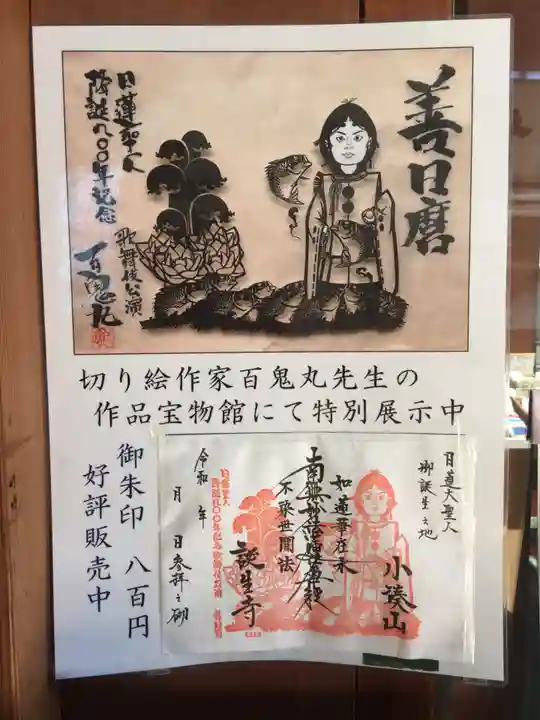 善日麿
日蓮聖人
降誕八〇〇年記念
歌舞伎公演
百鬼丸
切り絵作家百鬼丸先生の
作品宝物館にて特別展示中
御朱印 八百円
好評販売中
日蓮大聖人
御誕生之地
小湊山
如蓮華在水
南無妙法蓮華経
不染世間法
誕生寺
日蓮聖人
降誕八〇〇年記念歌舞伎公演
令和 年
月 日参拝之砌